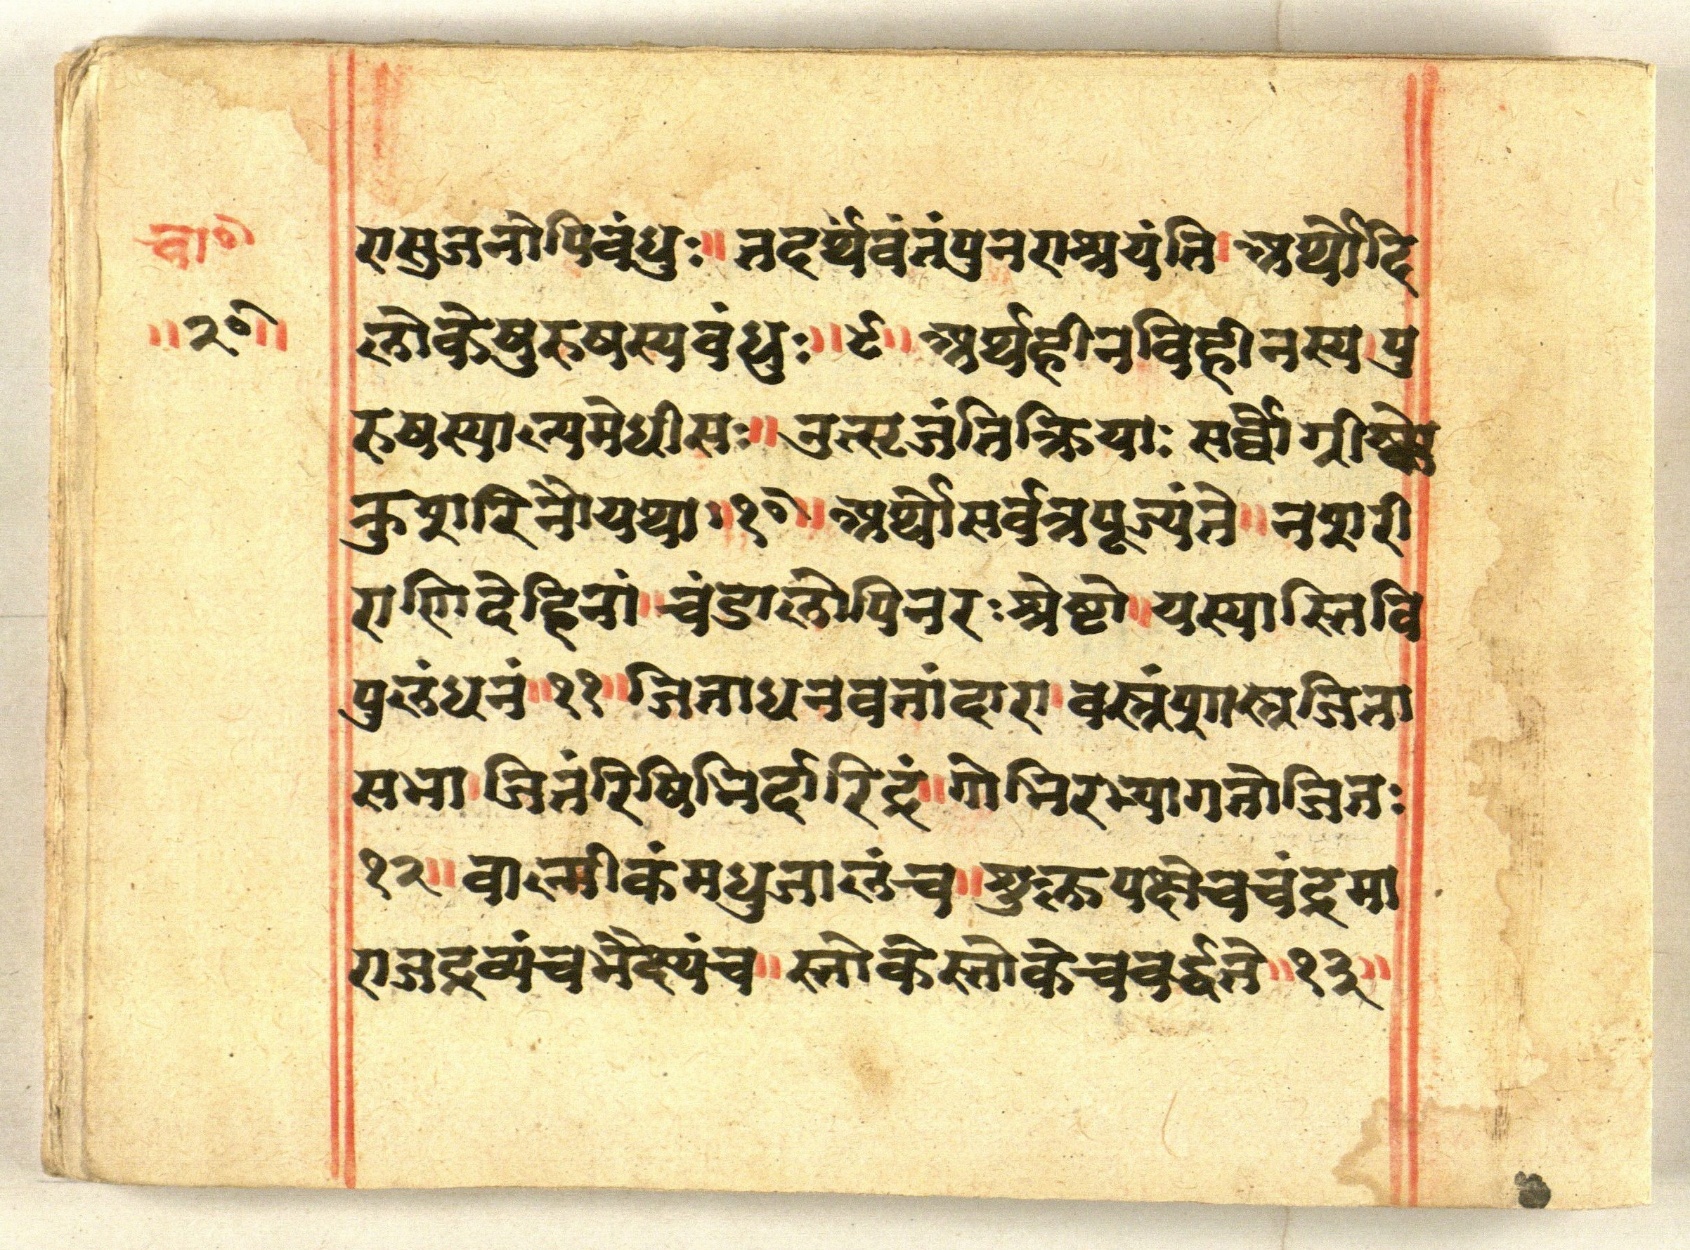 चा०
रासुजनोपिबंधुः ॥ तदर्थवंतंपुनराश्रयंति । अर्थोहि
॥ २० ॥
लोकेषुरुषस्यवंधुः ॥ ९ ॥ अर्थहीनविहीनस्य । पु
रुषस्याल्पमेधीसः ॥ उत्सृजंतिक्रियाः सर्वाै ग्रीष्मे
कुशरितोयथा ॥ १० ॥ अर्थोसर्वत्रपूज्यंते ॥ नशरी
राणिदेहिनां ॥ चंडालोपिनरःश्रेष्टो ॥ यस्यास्तिवि
पुलंधनं ॥ ११ ॥ जिताधनवतांदारा । वस्त्रंशास्त्रजिता
सभा । जितंरिषिभिर्दारिद्रं ॥ गोभिरभ्यागतोजितः
१२ ॥ वाल्मीकंमधुजालंच ॥ शुक्लपक्षेचचंद्रमा
राजद्रव्यंचभैक्ष्यंच ॥ स्तोकेस्तोकेचवर्द्धते ॥ १३ ॥